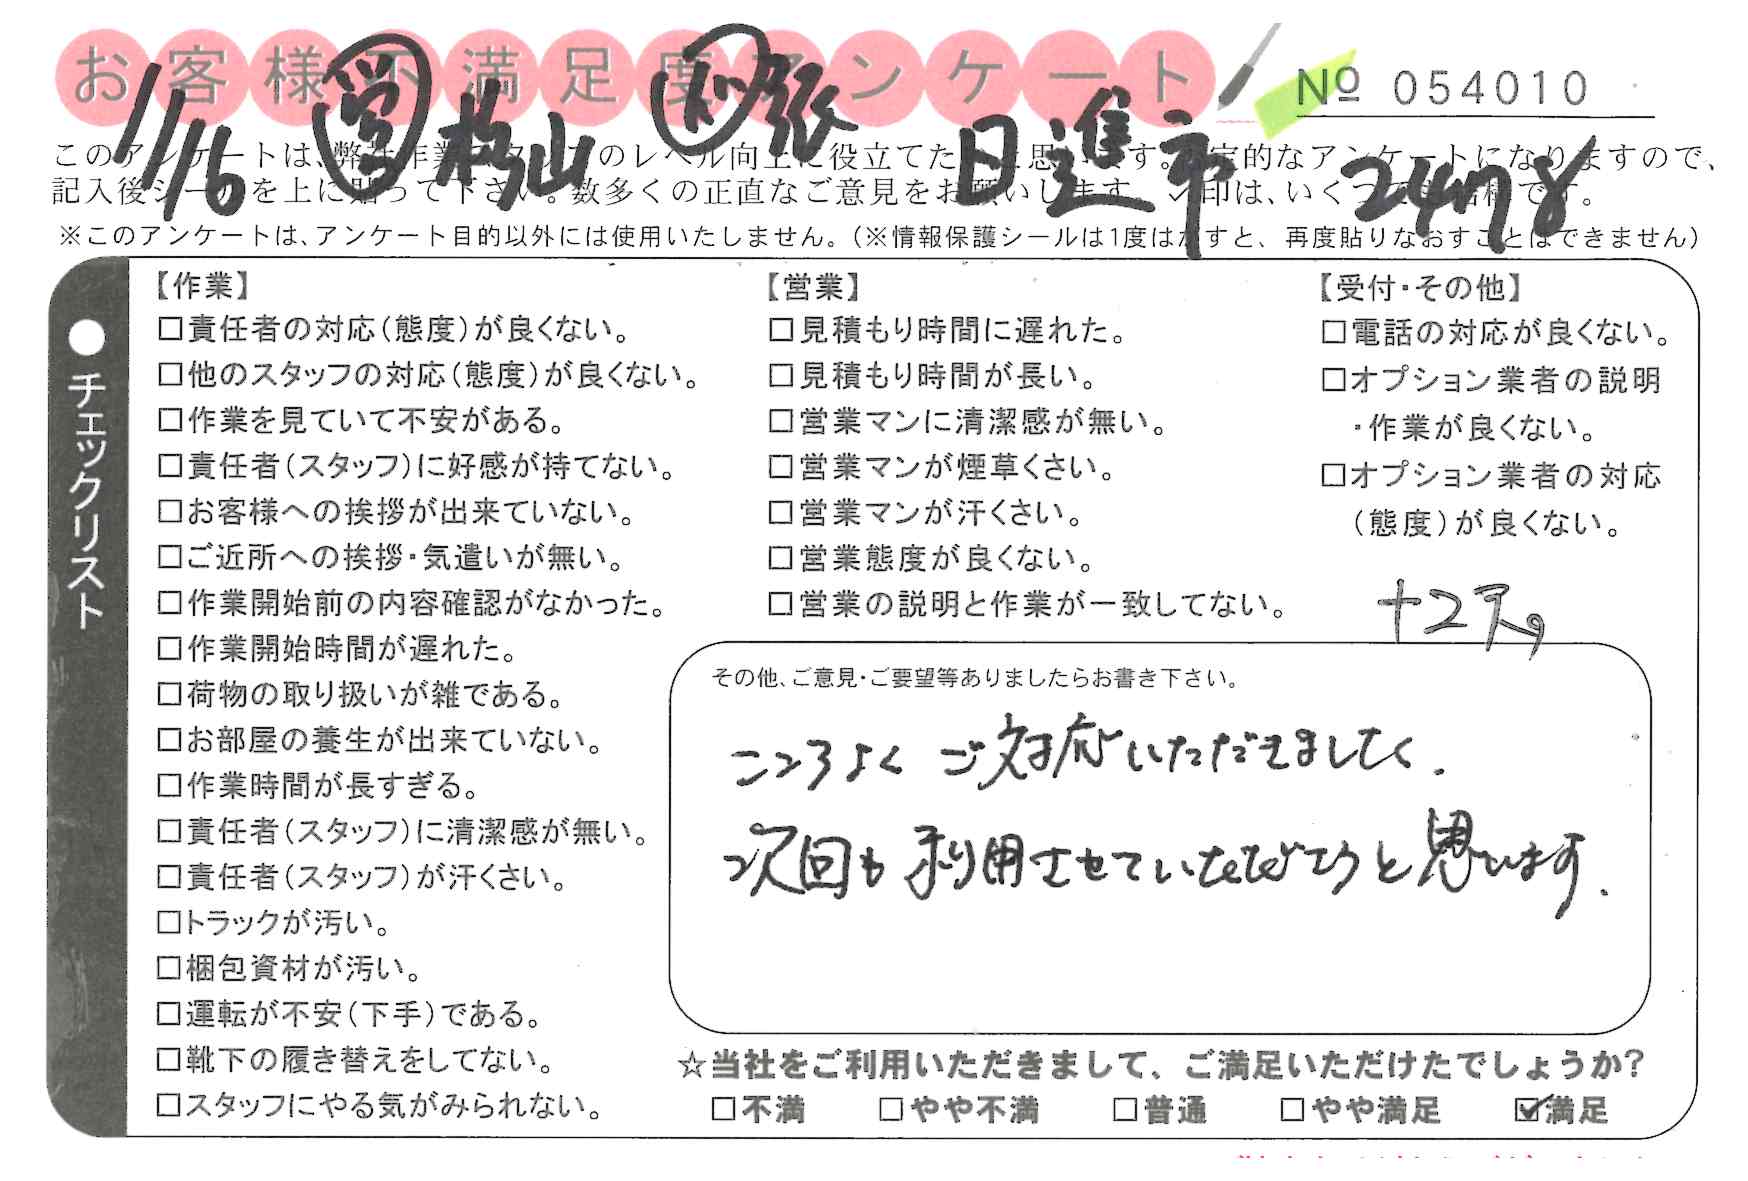 お客様不満足度アンケート
№ 054010
11/16 営 横山 張 日進市 2478
このアンケートは、弊社作業スタッフのレベル向上に役立てたいと思います。定的なアンケートになりますので、
記入後シールを上に貼って下さい。数多くの正直なご意見をお願いします。レ印は、いくつでも結構です。
※このアンケートは、アンケート目的以外には使用いたしません。(※情報保護シールは1度はがすと、再度貼りなおすことはできません)
●チェックリスト
【作業】
□責任者の対応(態度)が良くない。
□他のスタッフの対応(態度)が良くない。
□作業を見ていて不安がある。
□責任者(スタッフ)に好感が持てない。
□お客様への挨拶が出来ていない。
□ご近所への挨拶・気遣いが無い。
□作業開始前の内容確認がなかった。
□作業開始時間が遅れた。
□荷物の取り扱いが雑である。
□お部屋の養生が出来ていない。
□作業時間が長すぎる。
□責任者(スタッフ)に清潔感が無い。
□責任者(スタッフ)が汗くさい。
□トラックが汚い。
□梱包資材が汚い。
□運転が不安(下手)である。
□靴下の履き替えをしてない。
□スタッフにやる気がみられない。
【営業】
□見積もり時間に遅れた。
□見積もり時間が長い。
□営業マンに清潔感が無い。
□営業マンが煙草くさい。
□営業マンが汗くさい。
□営業態度が良くない。
□営業の説明と作業が一致してない。
【受付・その他】
□電話の対応が良くない。
□オプション業者の説明
・作業が良くない。
□オプション業者の対応
(態度)が良くない。
その他、ご意見・ご要望等ありましたらお書き下さい。
こころよく ご対応いただきまして、
次回も 利用させていただこうと思います.
☆当社をご利用いただきまして、ご満足いただけたでしょうか?
□不満 □やや不満 □普通 □やや満足 ☑満足